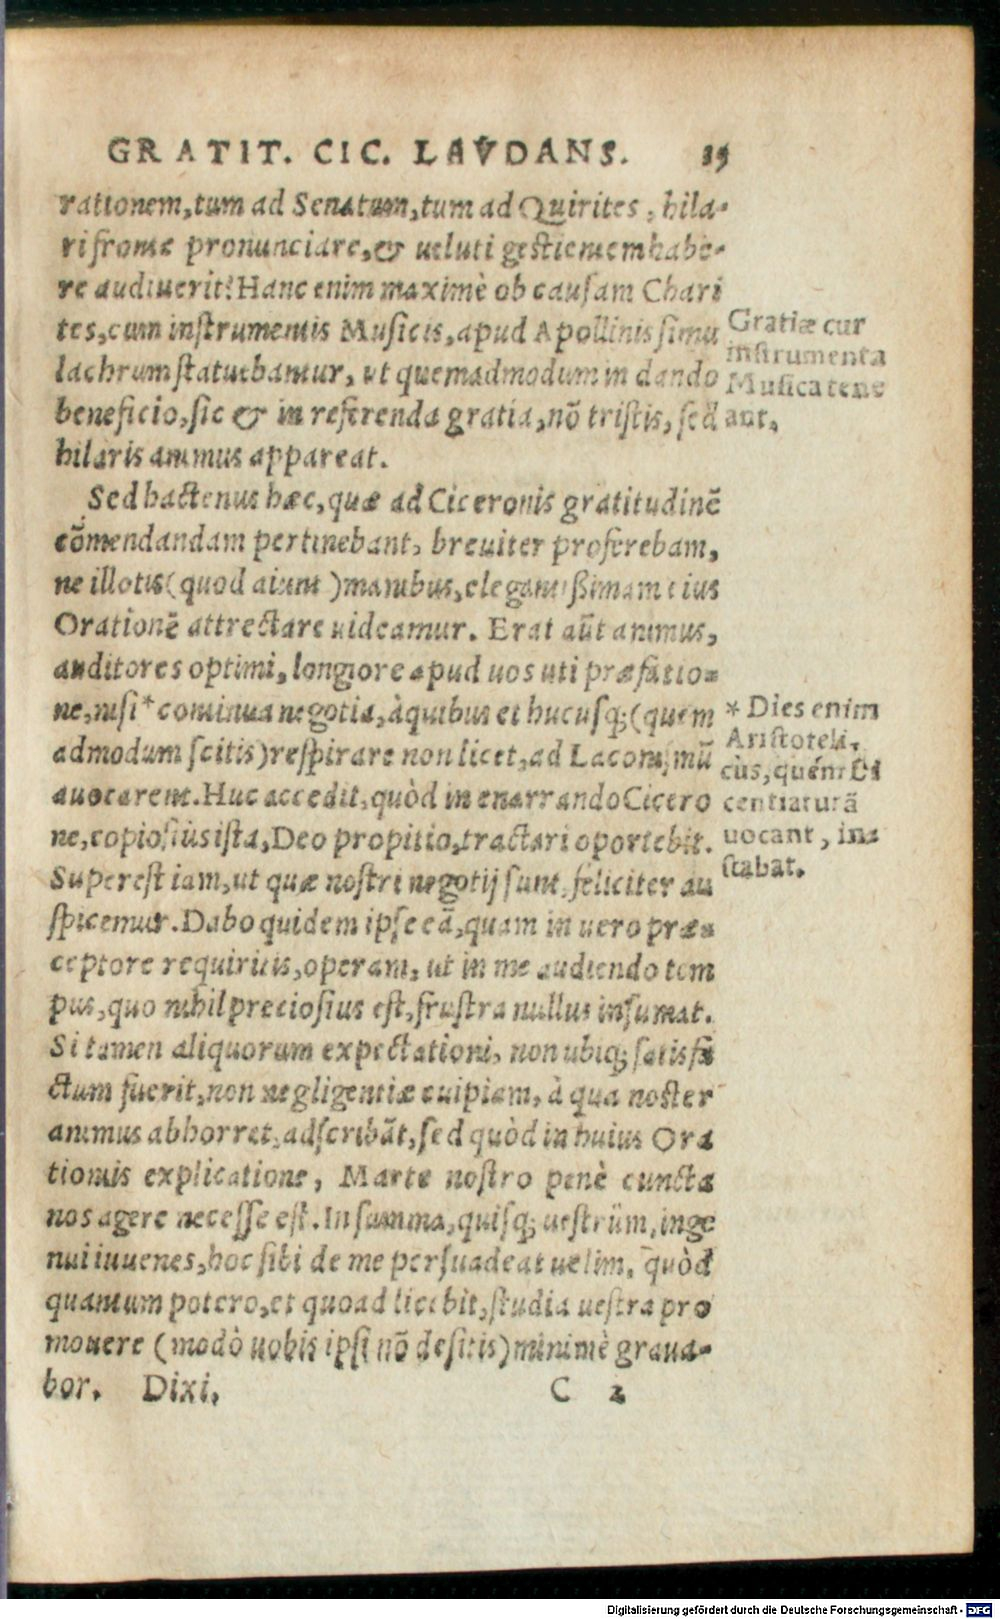 GRATIT. CIC. LAVDANS. 15
rationem, tum ad Senatum, tum ad Quirites, hila-
ri fronte pronunciare, & ueluti gestientem habe-
re audiuerit? Hanc enim maximè ob causam Chari
tes, cum instrumentis Musicis, apud Apollinis simu
lachrum statuebantur, ut quemadmodum in dando
beneficio, sic & in referenda gratia, nõ tristis, sed
hilaris animus appareat.
Gratiæ cur
instrumenta
Musica tene
ant.
Sed hactenus hæc, quæ ad Ciceronis gratitudinẽ
cõmendandam pertinebant, breuiter proferebam,
ne illotis (quod aiunt) manibus, elegantißimam eius
Orationẽ attrectare uideamur. Erat aũt animus,
auditores optimi, longiore apud uos uti præfatio-
ne, nisi * continua negotia, à quibus et hucusq; (quem
admodum scitis) respirare non licet, ad Laconismũ
auocarent. Huc accedit, quòd in enarrando Cicero
ne, copiosiùs ista, Deo propitio, tractari oportebit.
Superest iam, ut quæ nostri negotij sunt, feliciter au
spicemur. Dabo quidem ipse eã, quam in uero præ-
ceptore requiritis, operam, ut in me audiendo tem
pus, quo nihil preciosius est, frustra nullus insumat.
Si tamen aliquorum expectationi, non ubiq; satisfa
ctum fuerit, non negligentiæ cuipiam, à qua noster
animus abhorret, adscribãt, sed quòd in huius Ora
tionis explicatione, Marte nostro penè cuncta
nos agere necesse est. In summa, quisq; uestrûm, inge
nui iuuenes, hoc sibi de me persuadeat uelim, quòd
quantum potero, et quoad licebit, studia uestra pro
mouere (modò uobis ipsi nõ desitis) minimè graua-
bor. Dixi.
* Dies enim
Aristoteli-
cùs, quém Li
centiaturã
uocant, in-
stabat.
C 2
Digitalisierung gefördert durch die Deutsche Forschungsgemeinschaft - DFG